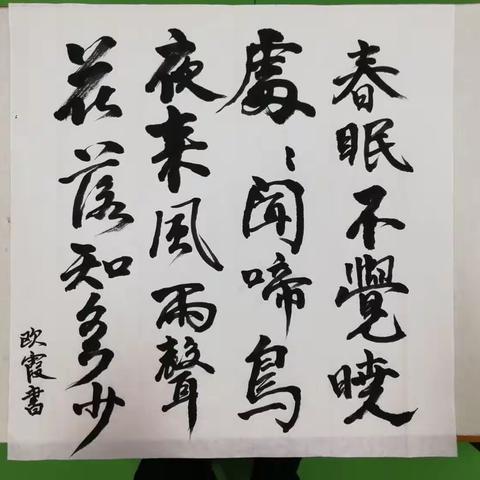 春眠不覺曉
處〻聞啼鳥
夜来風雨聲
花落知多少
欧霞書